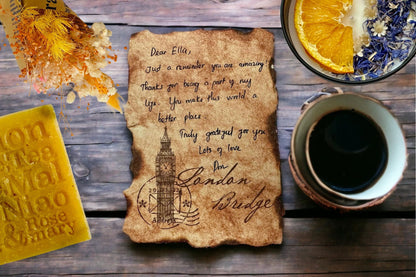 Dear Ella,
Just a reminder you are amazing
Thanks for being a part of my
life. You make this world a
better place
Truly grateful for you
Lots of love
London
Bridge
& Rose
mary